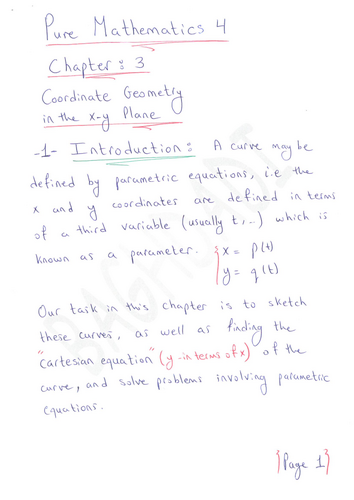 Pure Mathematics 4
Chapter : 3
Coordinate Geometry
in the x-y Plane
-1- Introduction : A curve may be
defined by parametric equations, i.e. the
x and y coordinates are defined in terms
of a third variable (usually t, ..) which is
known as a parameter. { x = p(t)
y = q(t)
Our task in this chapter is to sketch
these curves, as well as finding the
"Cartesian equation" (y-in terms of x) of the
curve, and solve problems involving parametric
equations.
{Page 1}